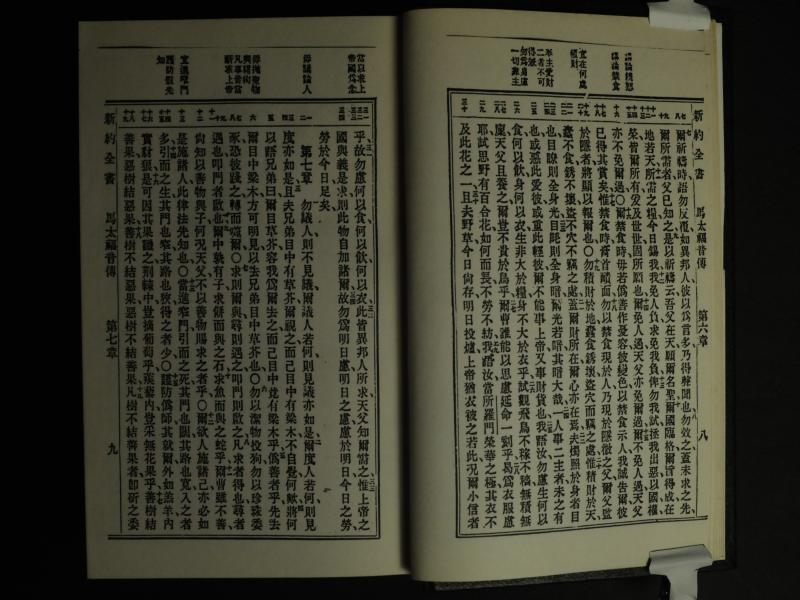 新約全書 馬太福音傳 第六章 八
講論禁食
宜在何處
積財
二者不可
得兼
勿爲身慮
爾祈禱時語勿反覆如異邦人彼以爲言多乃得聲聞也勿效之蓋未求之先
爾所需者父已知之是以祈禱云吾父在天願爾名聖爾國臨格爾旨得成在
地若天所需之糧今日錫我我免人負求免我負俾勿我試拯我出惡以國權
榮皆爾所有爰及世世固所願也爾免人過天父亦免爾過爾不免人過天父
亦不免爾過〇爾禁食時毋若僞善作憂容彼變色以禁食示人我誠告爾彼
已得其賞矣惟禁食時膏首靧面勿以禁食現於人乃現於隱微之父爾父監
於隱者將顯以報爾也〇勿積財於地蠹食銹壞盜穴而竊之處惟積財於天
蠹不食銹不壞盜不穴不竊之處蓋爾財所在爾心亦在焉夫燭照於身者目
也目瞭則全身光目眊則全身暗爾光若暗其暗大哉一人事二主者未之有
也或惡此愛彼或重此輕彼爾不能事上帝又事財貨也我語汝勿慮生何以
食何以飲身何以衣生非大於糧身不大於衣乎試觀飛鳥不稼不穡無積無
廩天父且養之爾豈不貴於鳥乎爾曹誰能以思慮延命一刻乎曷爲衣服慮
耶試思野有百合花如何而長不勞不紡我語汝當所羅門榮華之極其衣不
及此花之一且夫野草今日尚存明日投爐上帝猶衣被之若此況爾小信者
當以求上
帝國爲念
毋議論人
宜進窄門
謹防假先
知
乎故勿慮何以食何以飲何以衣此皆異邦人所求天父知爾需之惟上帝之
國與義是求則此物自加諸爾故勿爲明日慮明日之慮慮於明日今日之勞
勞於今日足矣
第七章 勿議人則不見議爾議人若何則見議亦如是爾度人若何則見
度亦如是且夫兄弟目中有草芥爾視之而己目中有梁木不自覺何歟將何
以語兄弟曰爾目草芥容我爲爾去之而己目中竟有梁木乎僞善者乎先去
爾目中梁木方可明見以去兄弟目中草芥也〇勿以潔物投狗勿以珍珠委
豕恐彼踐之轉而噬爾〇求則爾與尋則遇之叩門則啟之凡求者得也尋者
遇也叩門者啟也爾中孰有子求餅而與之石求魚而與之蛇乎爾曹雖不善
尚知以善物與子何況天父不以善物賜求之者乎〇爾欲人施諸己亦必如
是施諸人此律法先知也〇當進窄門引而之死其門也闊其路也寬入之者
多引而之生其門也窄其路也狹得之者少〇謹防僞師其就爾外如羔羊內
實豺狼是可因其果識之荊棘中豈摘葡萄乎蒺藜內豈采無花果乎善樹結
善果惡樹結惡果善樹不結惡果惡樹不結善果凡樹不結善果者卽斫之委
新約全書 馬太福音傳 第七章 九